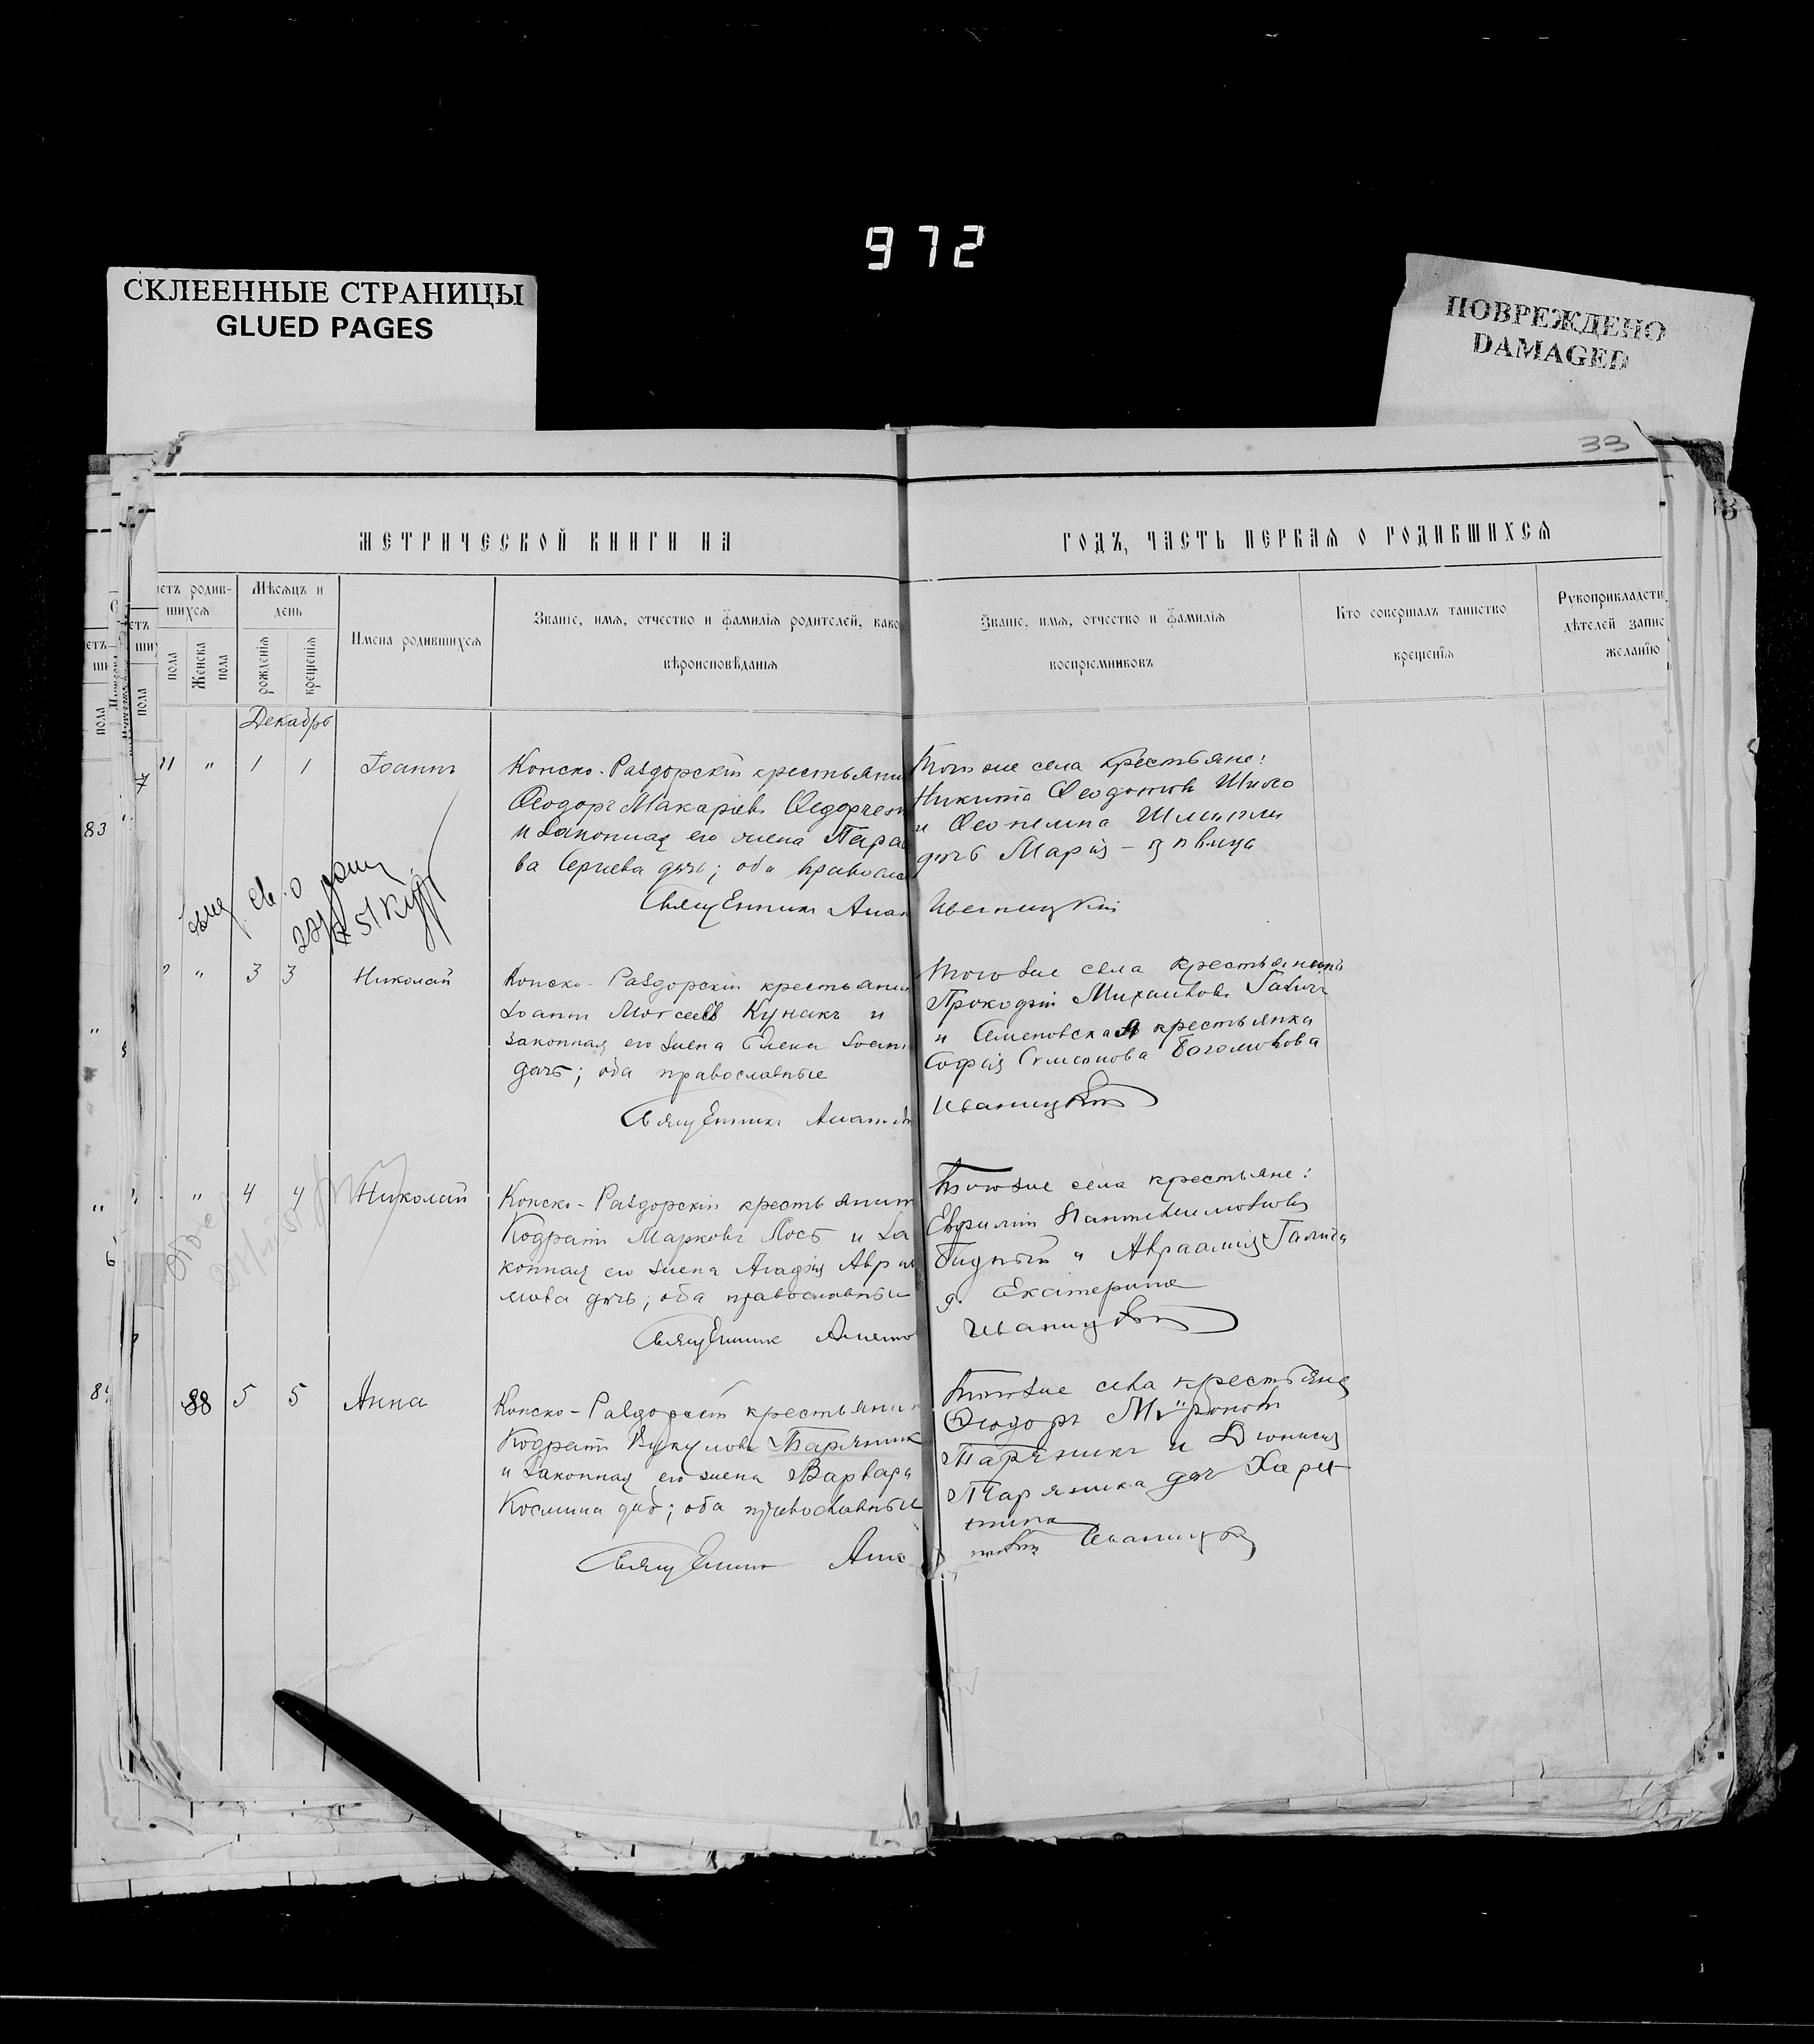 972
СКЛЕЕННЫЕ СТРАНИЦЫ
GLUED PAGES
ПОВРЕЖДЕНО
DAMAGED
33
МЕТРИЧЕСКОЙ КНИГИ НА
ГОДЪ, ЧАСТЬ ПЕРВАЯ О РОДИВШИХСЯ
етъ родив-
шихся
пола
Женска пола
Мѣсяцъ и
день
рожденїя
крещенїя
Имена родившихся
Званїе, имя, отчество и фамилїя родителей, како
вѣроисповѣданїя
Званїе, имя, отчество и фамилїя
воспрїемниковъ
Кто совершалъ таинство
крещенїя
Рукоприкладст
дѣтелей запис
желанїю
Декабрь
" " 1 1 Іоаннъ
Конско-Раздорскій крестьяни
Ѳеодоръ Макаріевъ Ѳедорчен
и законная его жена Пара
ва Сергіева дчь; оба правосла
Священникъ Анат
Того же села крестьяне:
Никита Ѳеодотовъ Шило
дчь Марія – дѣвица
Иваницкій
83
" 3 3 Николай
Конско-Раздорскій крестьянин
Іоаннъ Моѵсеевъ Кунакъ и
законная его жена Елена Іоанн
дчь; оба православные
Священникъ Анатол
Того же села крестьянинъ
Прокофій Михаиловъ
и Семеновская крестьянка
Софія Симеонова Богомолова
Иваницкій
" 4 4 Николай
Конско-Раздорскій крестьянин
Кодратъ Марковъ Лось и за
конная его жена Агафія Авра
мова дчь; оба православные
Священник Анато
Того же села крестьяне:
Евфимій Пантелеимоновъ
Бидный и Авраамія Галига
д. Екатерина
Иваницкій
88 5 5 Анна
Конско-Раздорскій крестьянин
Кодратъ Вукуловъ Таряник
и законная его жена Варвара
Космина дчь; оба православные
Священник Ана
Того же села крестьяне
Ѳеодоръ Мѵроновъ
Таряникъ и Діонисія
Таряника дчь Хари
тина
Иваницкій